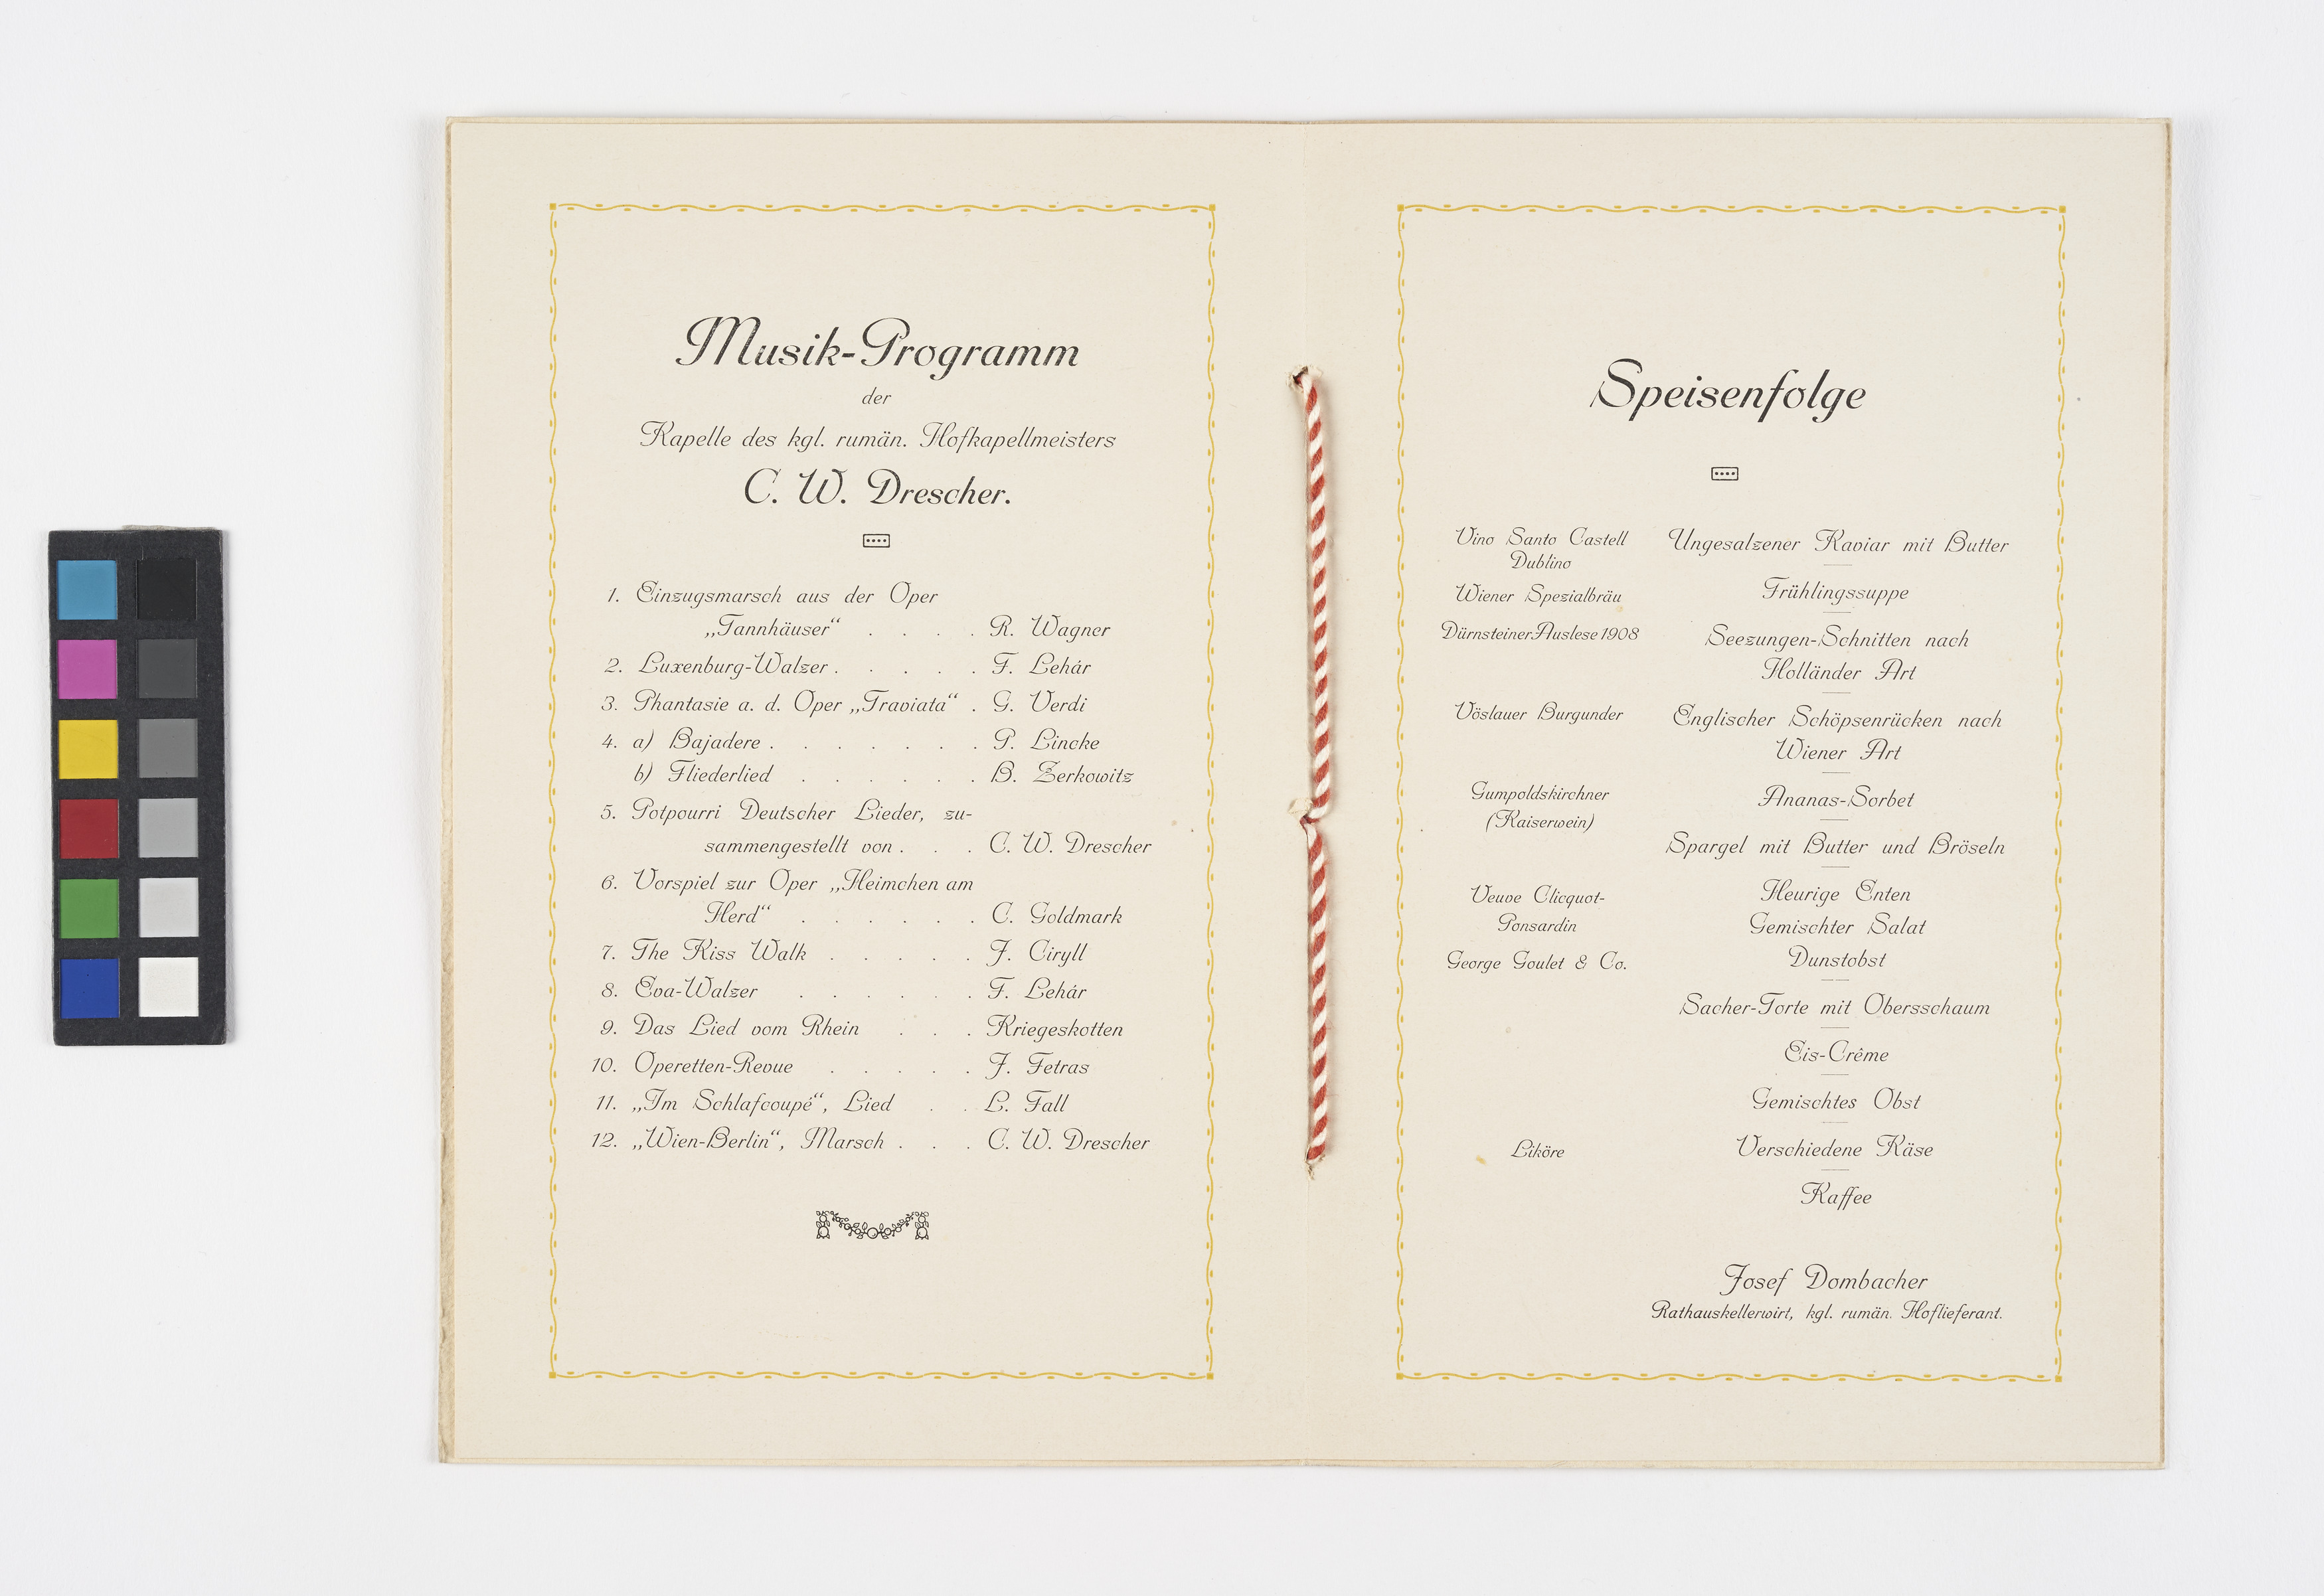 Musik-Programm
der
Kapelle des kgl. rumän. Hofkapellmeisters
C. W. Drescher.
1. Einzugsmarsch aus der Oper
„Tannhäuser“ . . . . R. Wagner
2. Luxenburg-Walzer . . . . . F. Lehár
3. Phantasie a. d. Oper „Traviata“ . G. Verdi
4. a) Bajadere . . . . . . . P. Lincke
b) Fliederlied . . . . . . B. Zerkowitz
5. Potpourri Deutscher Lieder, zu-
sammengestellt von . . . C. W. Drescher
6. Vorspiel zur Oper „Heimchen am
Herd“ . . . . . . C. Goldmark
7. The Kiss Walk . . . . . J. Ciryll
8. Eva-Walzer . . . . . . F. Lehár
9. Das Lied vom Rhein . . . Kriegeskotten
10. Operetten-Revue . . . . . J. Fetras
11. „Im Schlafcoupé“, Lied . . L. Fall
12. „Wien-Berlin“, Marsch . . . C. W. Drescher
Speisenfolge
Vino Santo Castell
Dublino
Wiener Spezialbräu
Dürnsteiner Auslese 1908
Vöslauer Burgunder
Gumpoldskirchner
(Kaiserwein)
Veuve Clicquot-
Ponsardin
George Goulet & Co.
Liköre
Ungesalzener Kaviar mit Butter
Frühlingssuppe
Seezungen-Schnitten nach
Holländer Art
Englischer Schöpsenrücken nach
Wiener Art
Ananas-Sorbet
Spargel mit Butter und Bröseln
Heurige Enten
Gemischter Salat
Dunstobst
Sacher-Torte mit Obersschaum
Eis-Crême
Gemischtes Obst
Verschiedene Käse
Kaffee
Josef Dombacher
Rathauskellerwirt, kgl. rumän. Hoflieferant.